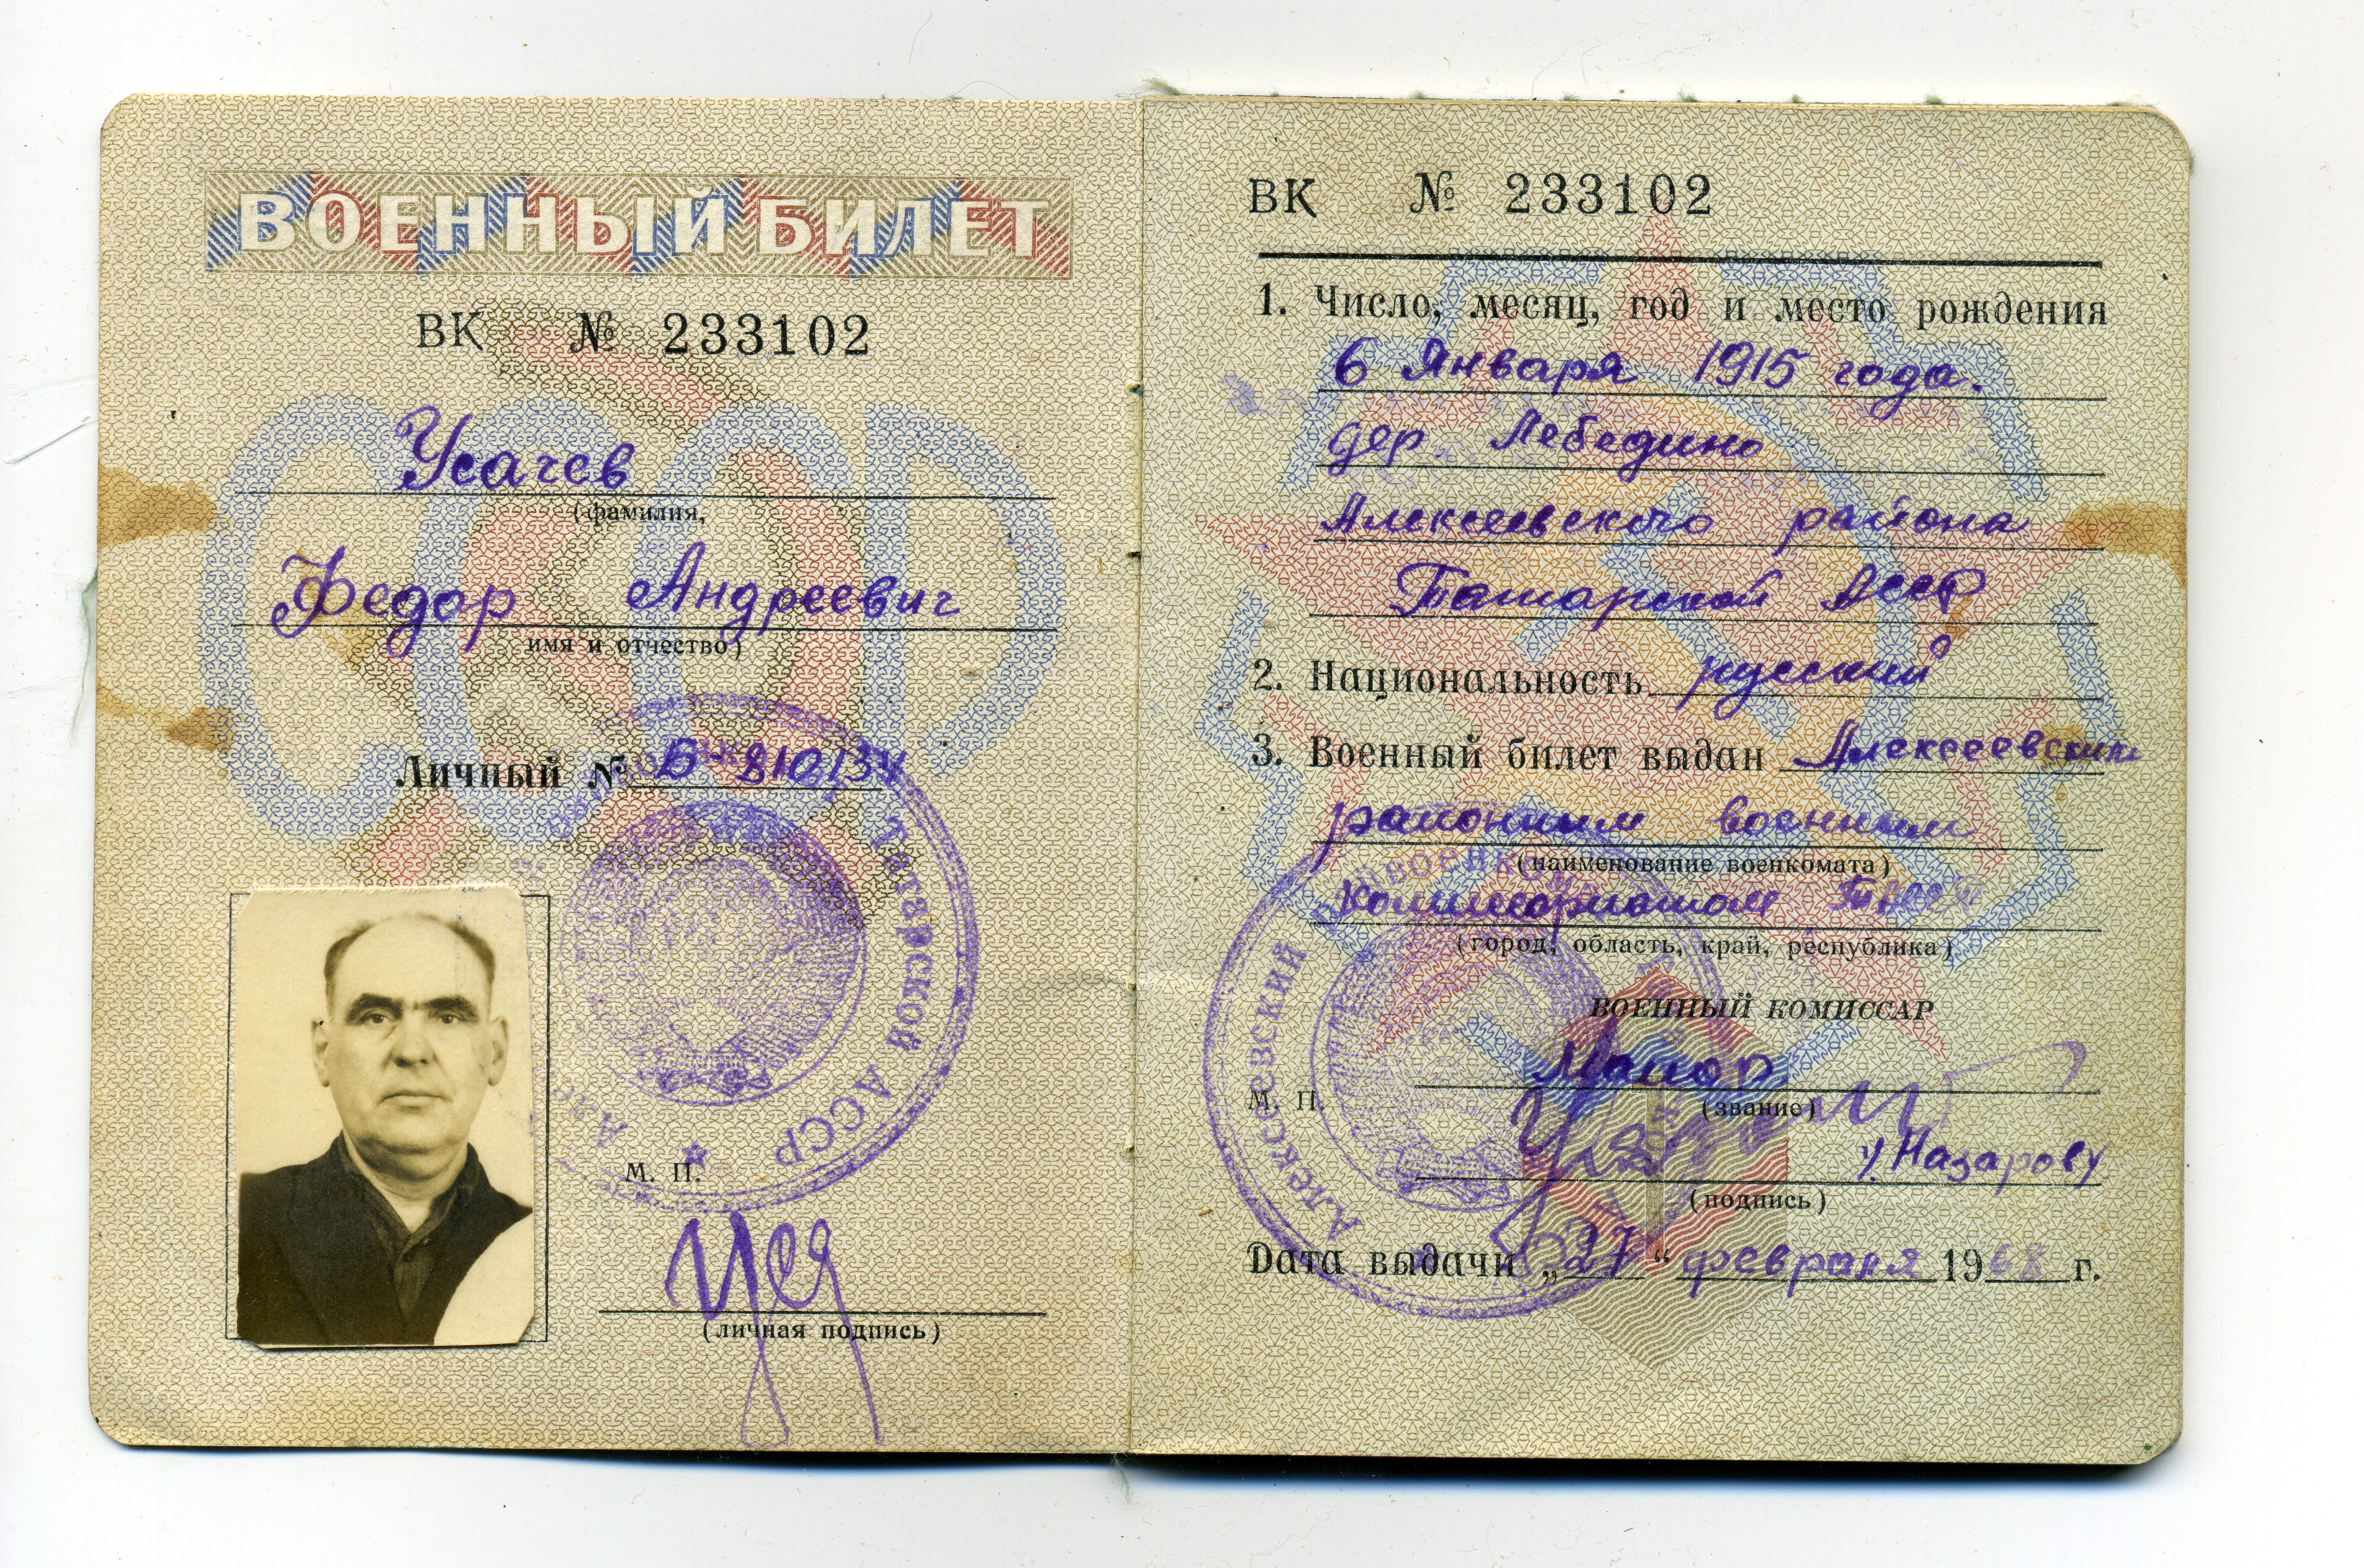 ВОЕННЫЙ БИЛЕТ
ВК № 233102
Усачев
(фамилия,
Федор Андреевич
имя и отчество)
Личный № Б-810134
Татарской АССР
М. П.
(личная подпись)
ВК № 233102
1. Число, месяц, год и место рождения
6 Января 1915 года.
дер. Лебедино
Алексеевского района
Татарской АССР
2. Национальность русский
3. Военный билет выдан Алексеевским
районным военным
(наименование военкомата)
Комиссариатом ТАССР
(город, область, край, республика)
ВОЕННЫЙ КОМИССАР
Майор
М. П. (звание)
Назарову
(подпись)
Алексеевский райвоенкомат
Дата выдачи „27“ февраля 1968 г.